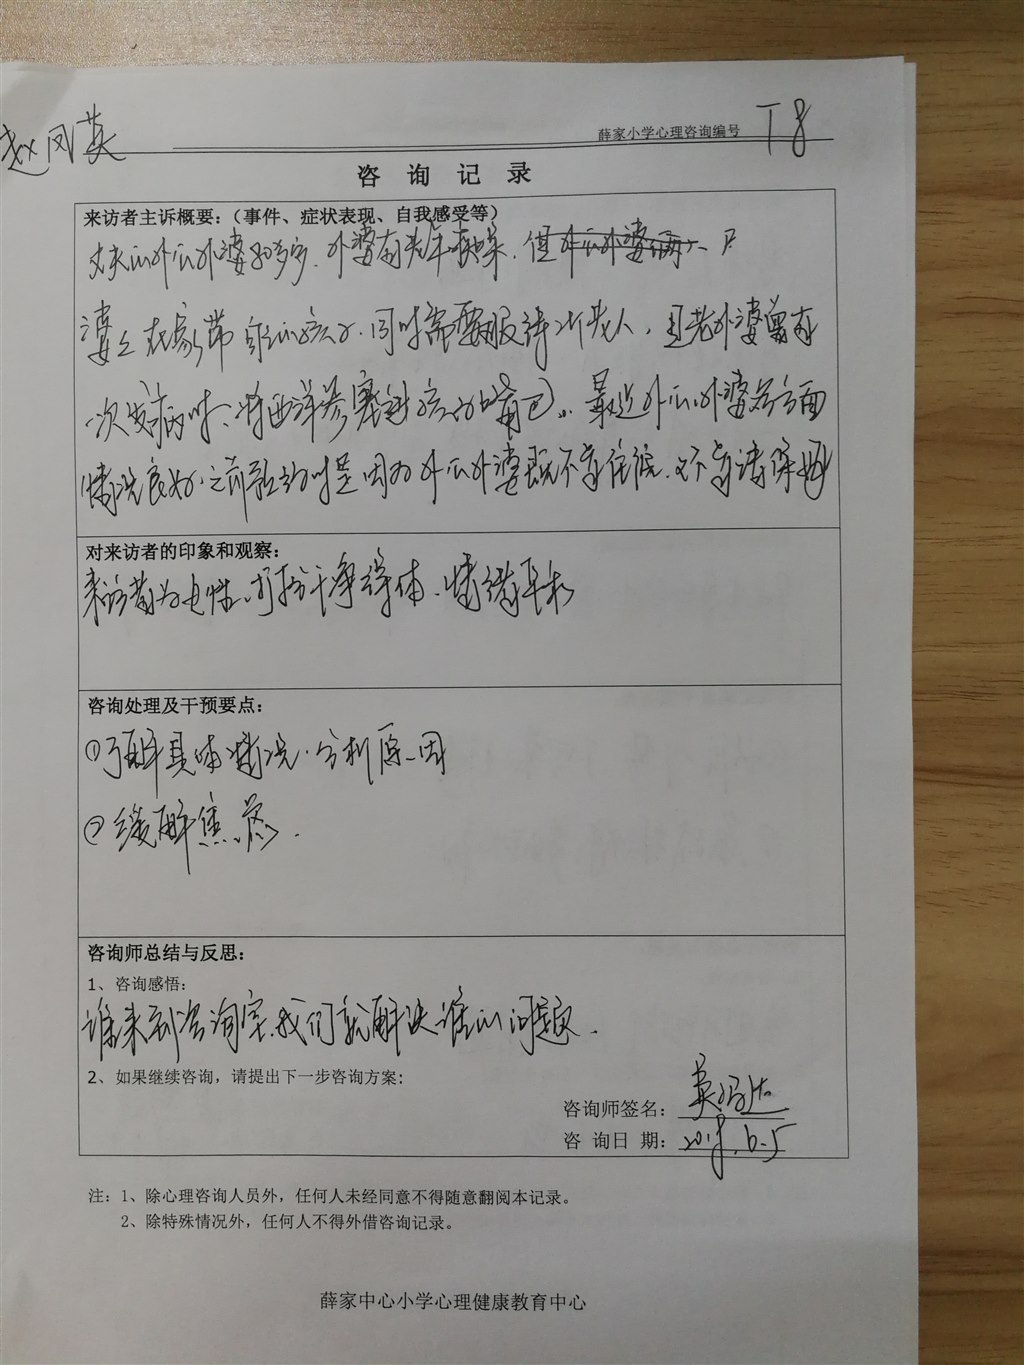 赵凤英
薛家小学心理咨询编号 T8
咨 询 记 录
来访者主诉概要：（事件、症状表现、自我感受等）
丈夫的外公外婆80多岁，外婆有老年痴呆，但
婆婆在家带自己的孩子，同时需要服侍2个老人，且老外婆曾有
一次发病时，将西洋参塞进孩子的嘴巴。最近外公外婆各方面
情况良好，之前预约时是因为外公外婆既不肯住院，又不肯请保姆
对来访者的印象和观察：
来访者为女性，打扮干净得体，情绪平和
咨询处理及干预要点：
①了解具体情况，分析原因
②缓解焦虑.
咨询师总结与反思：
1、咨询感悟：
谁来到咨询室，我们就解决谁的问题.
2、如果继续咨询，请提出下一步咨询方案：
咨询师签名：
咨 询 日 期： 2018.6.5
注：1、除心理咨询人员外，任何人未经同意不得随意翻阅本记录。
2、除特殊情况外，任何人不得外借咨询记录。
薛家中心小学心理健康教育中心